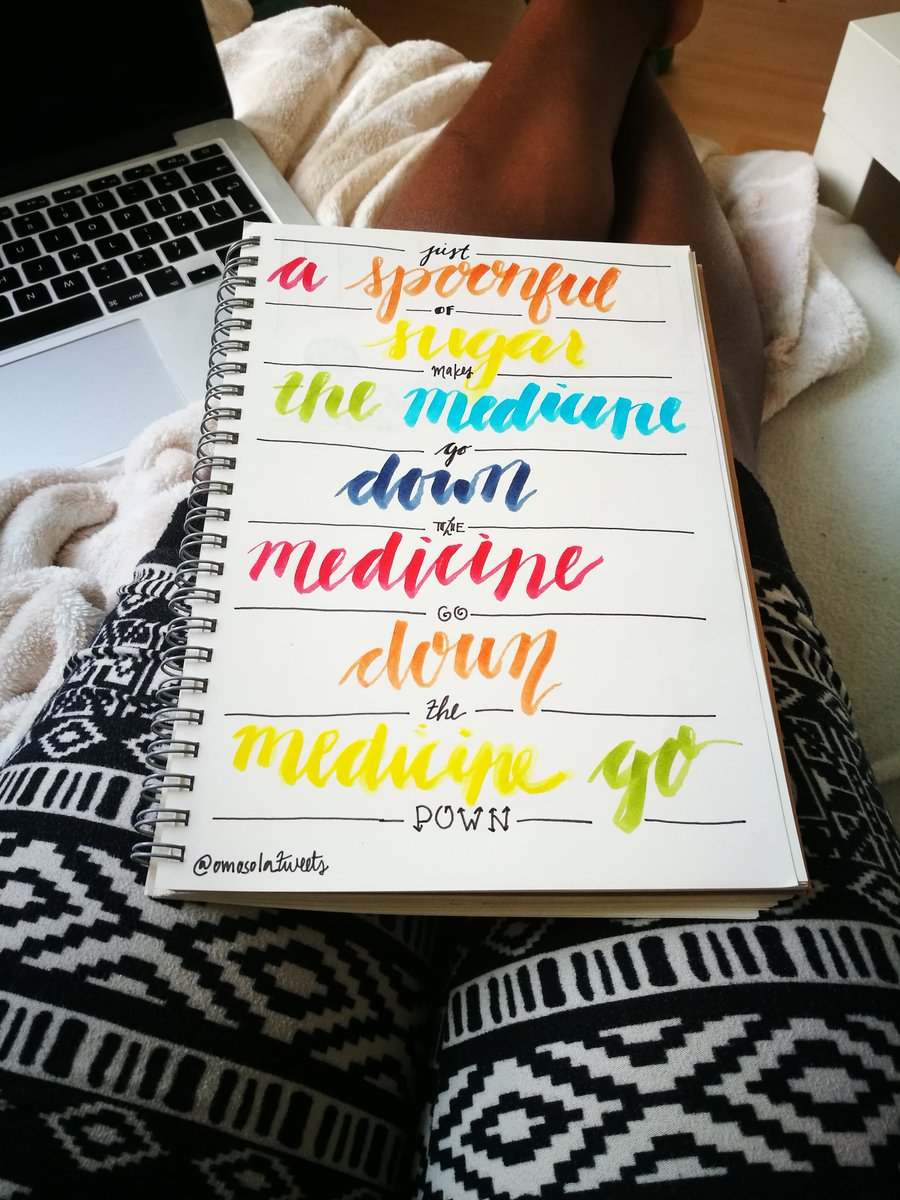 just
a spoonful
OF
sugar
makes
the medicine
go
down
THE
medicine
GO
down
the
medicine go
DOWN
@omosolatweets
cmd